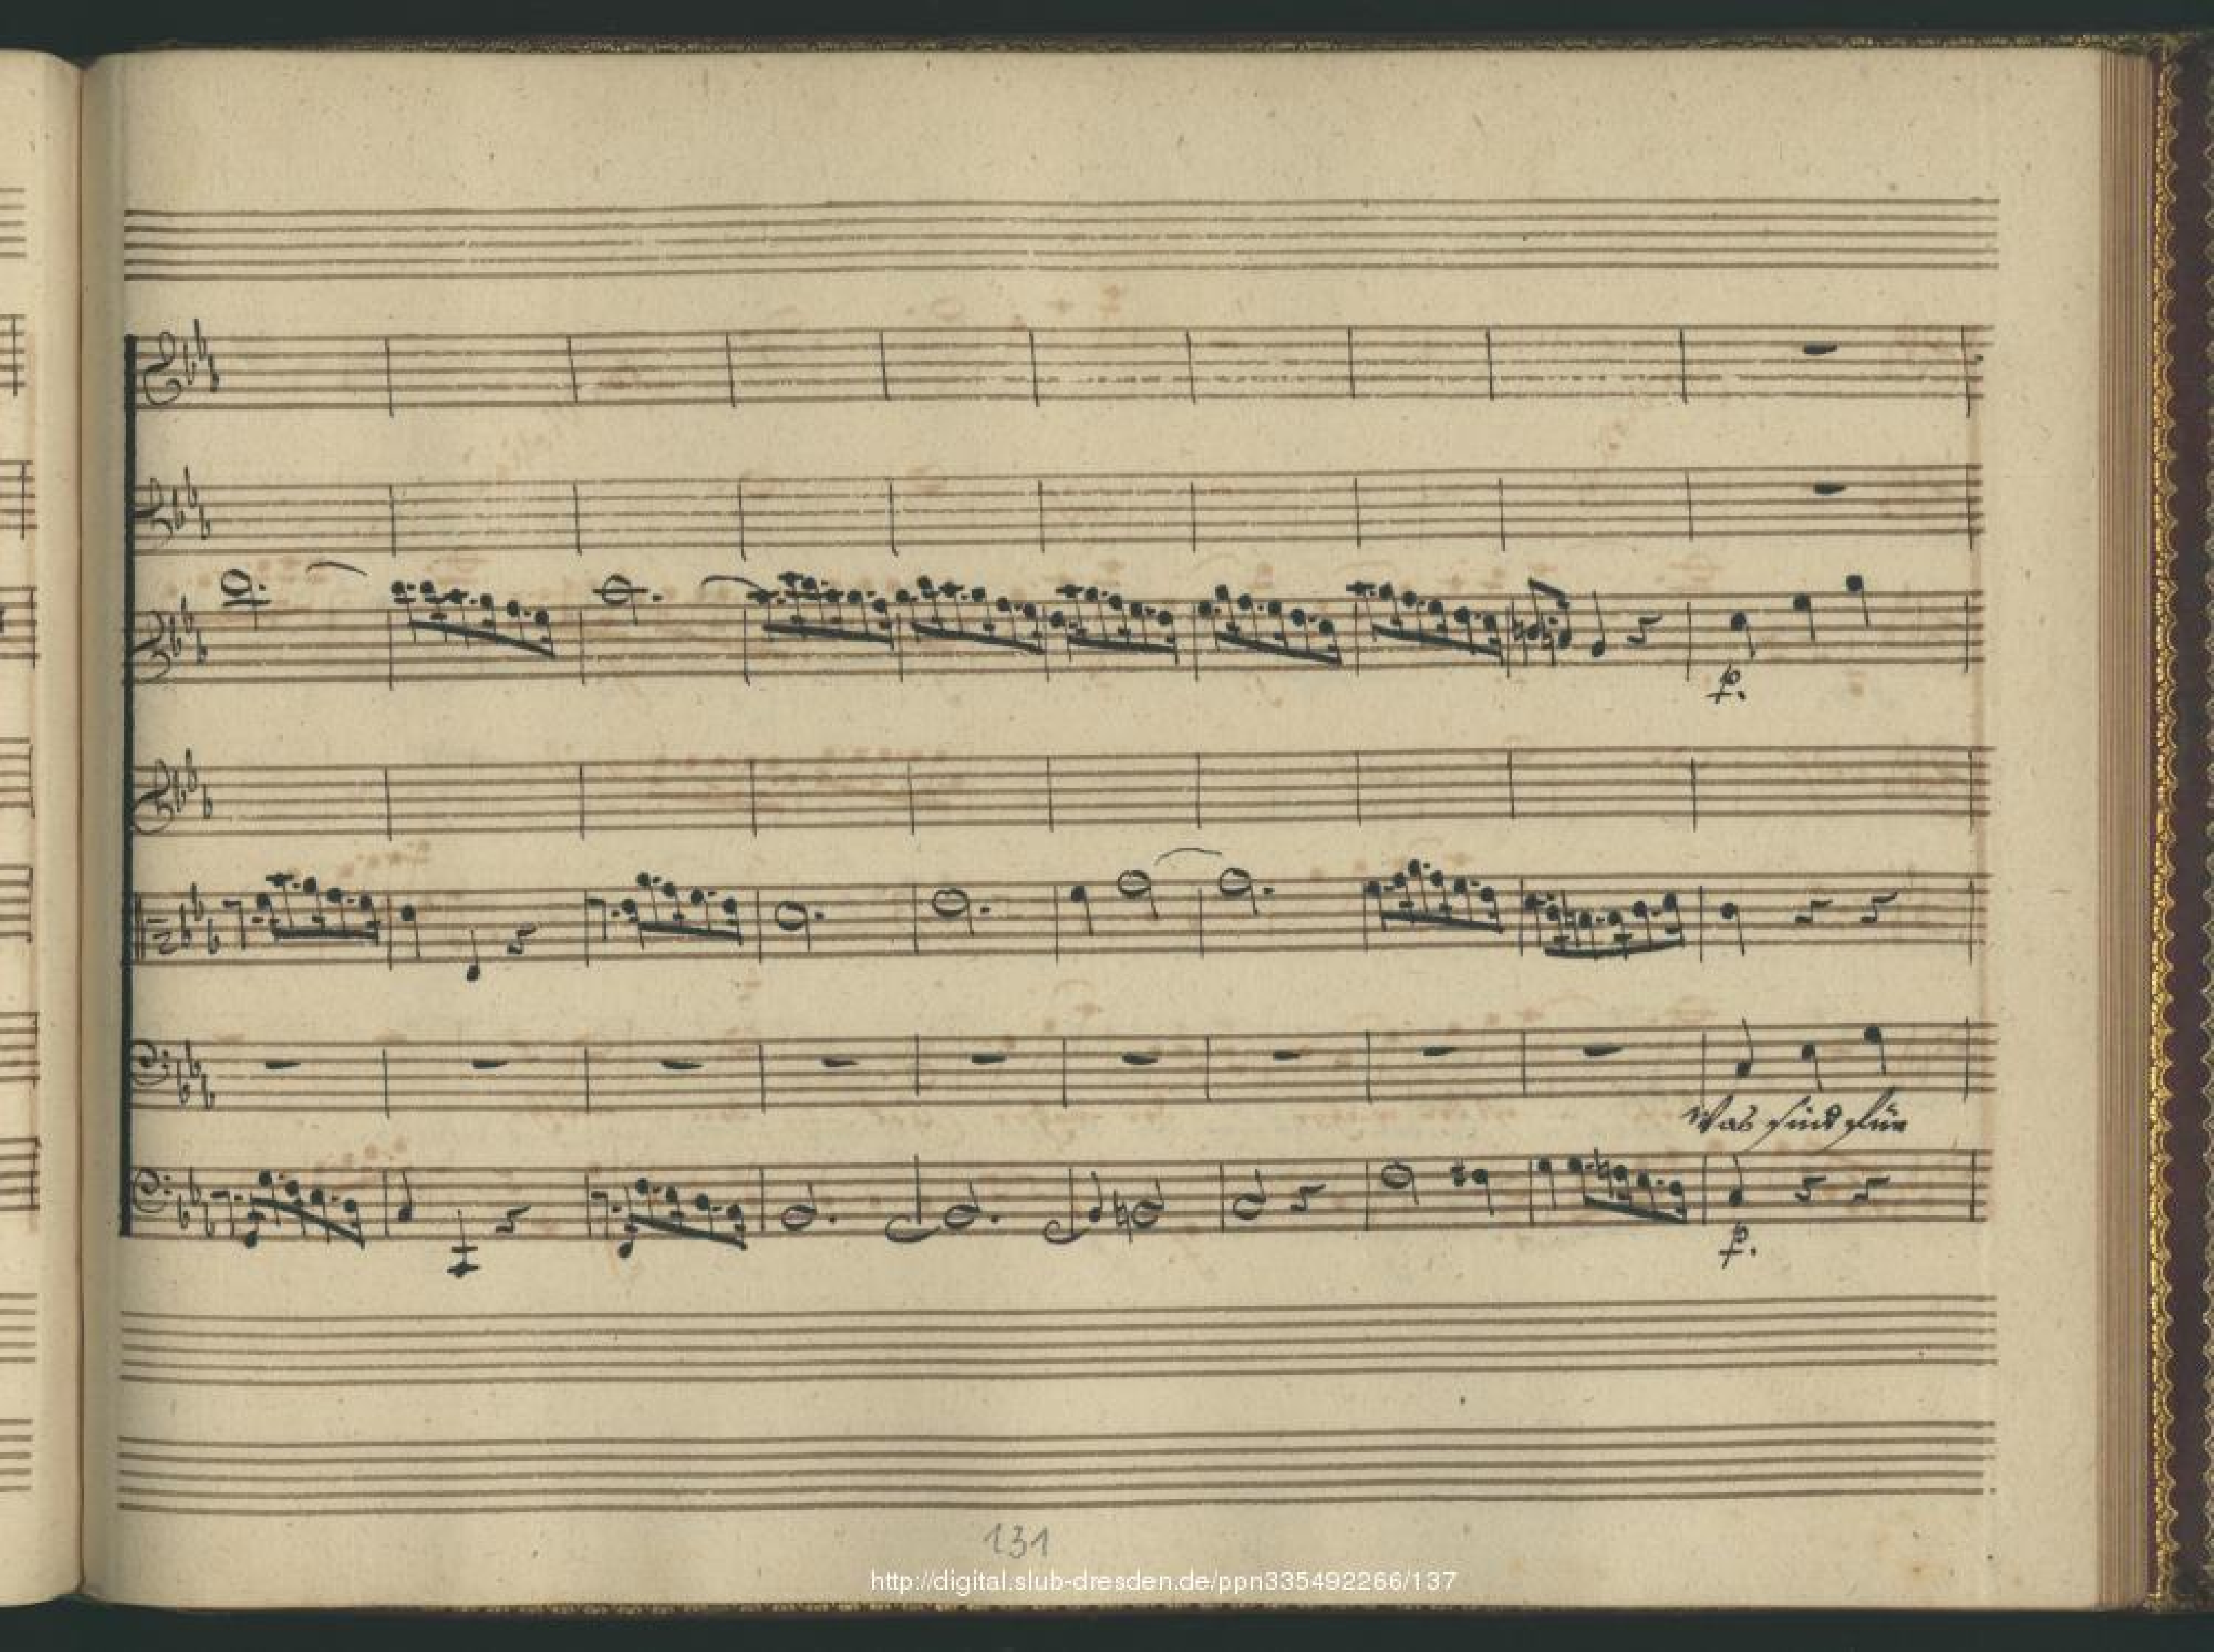 p.
Was sind
p.
131
http://digital.slub-dresden.de/ppn335492266/137